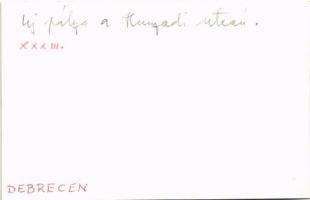 Új pálya a Hunyadi utcán.
XXXIII.
DEBRECEN